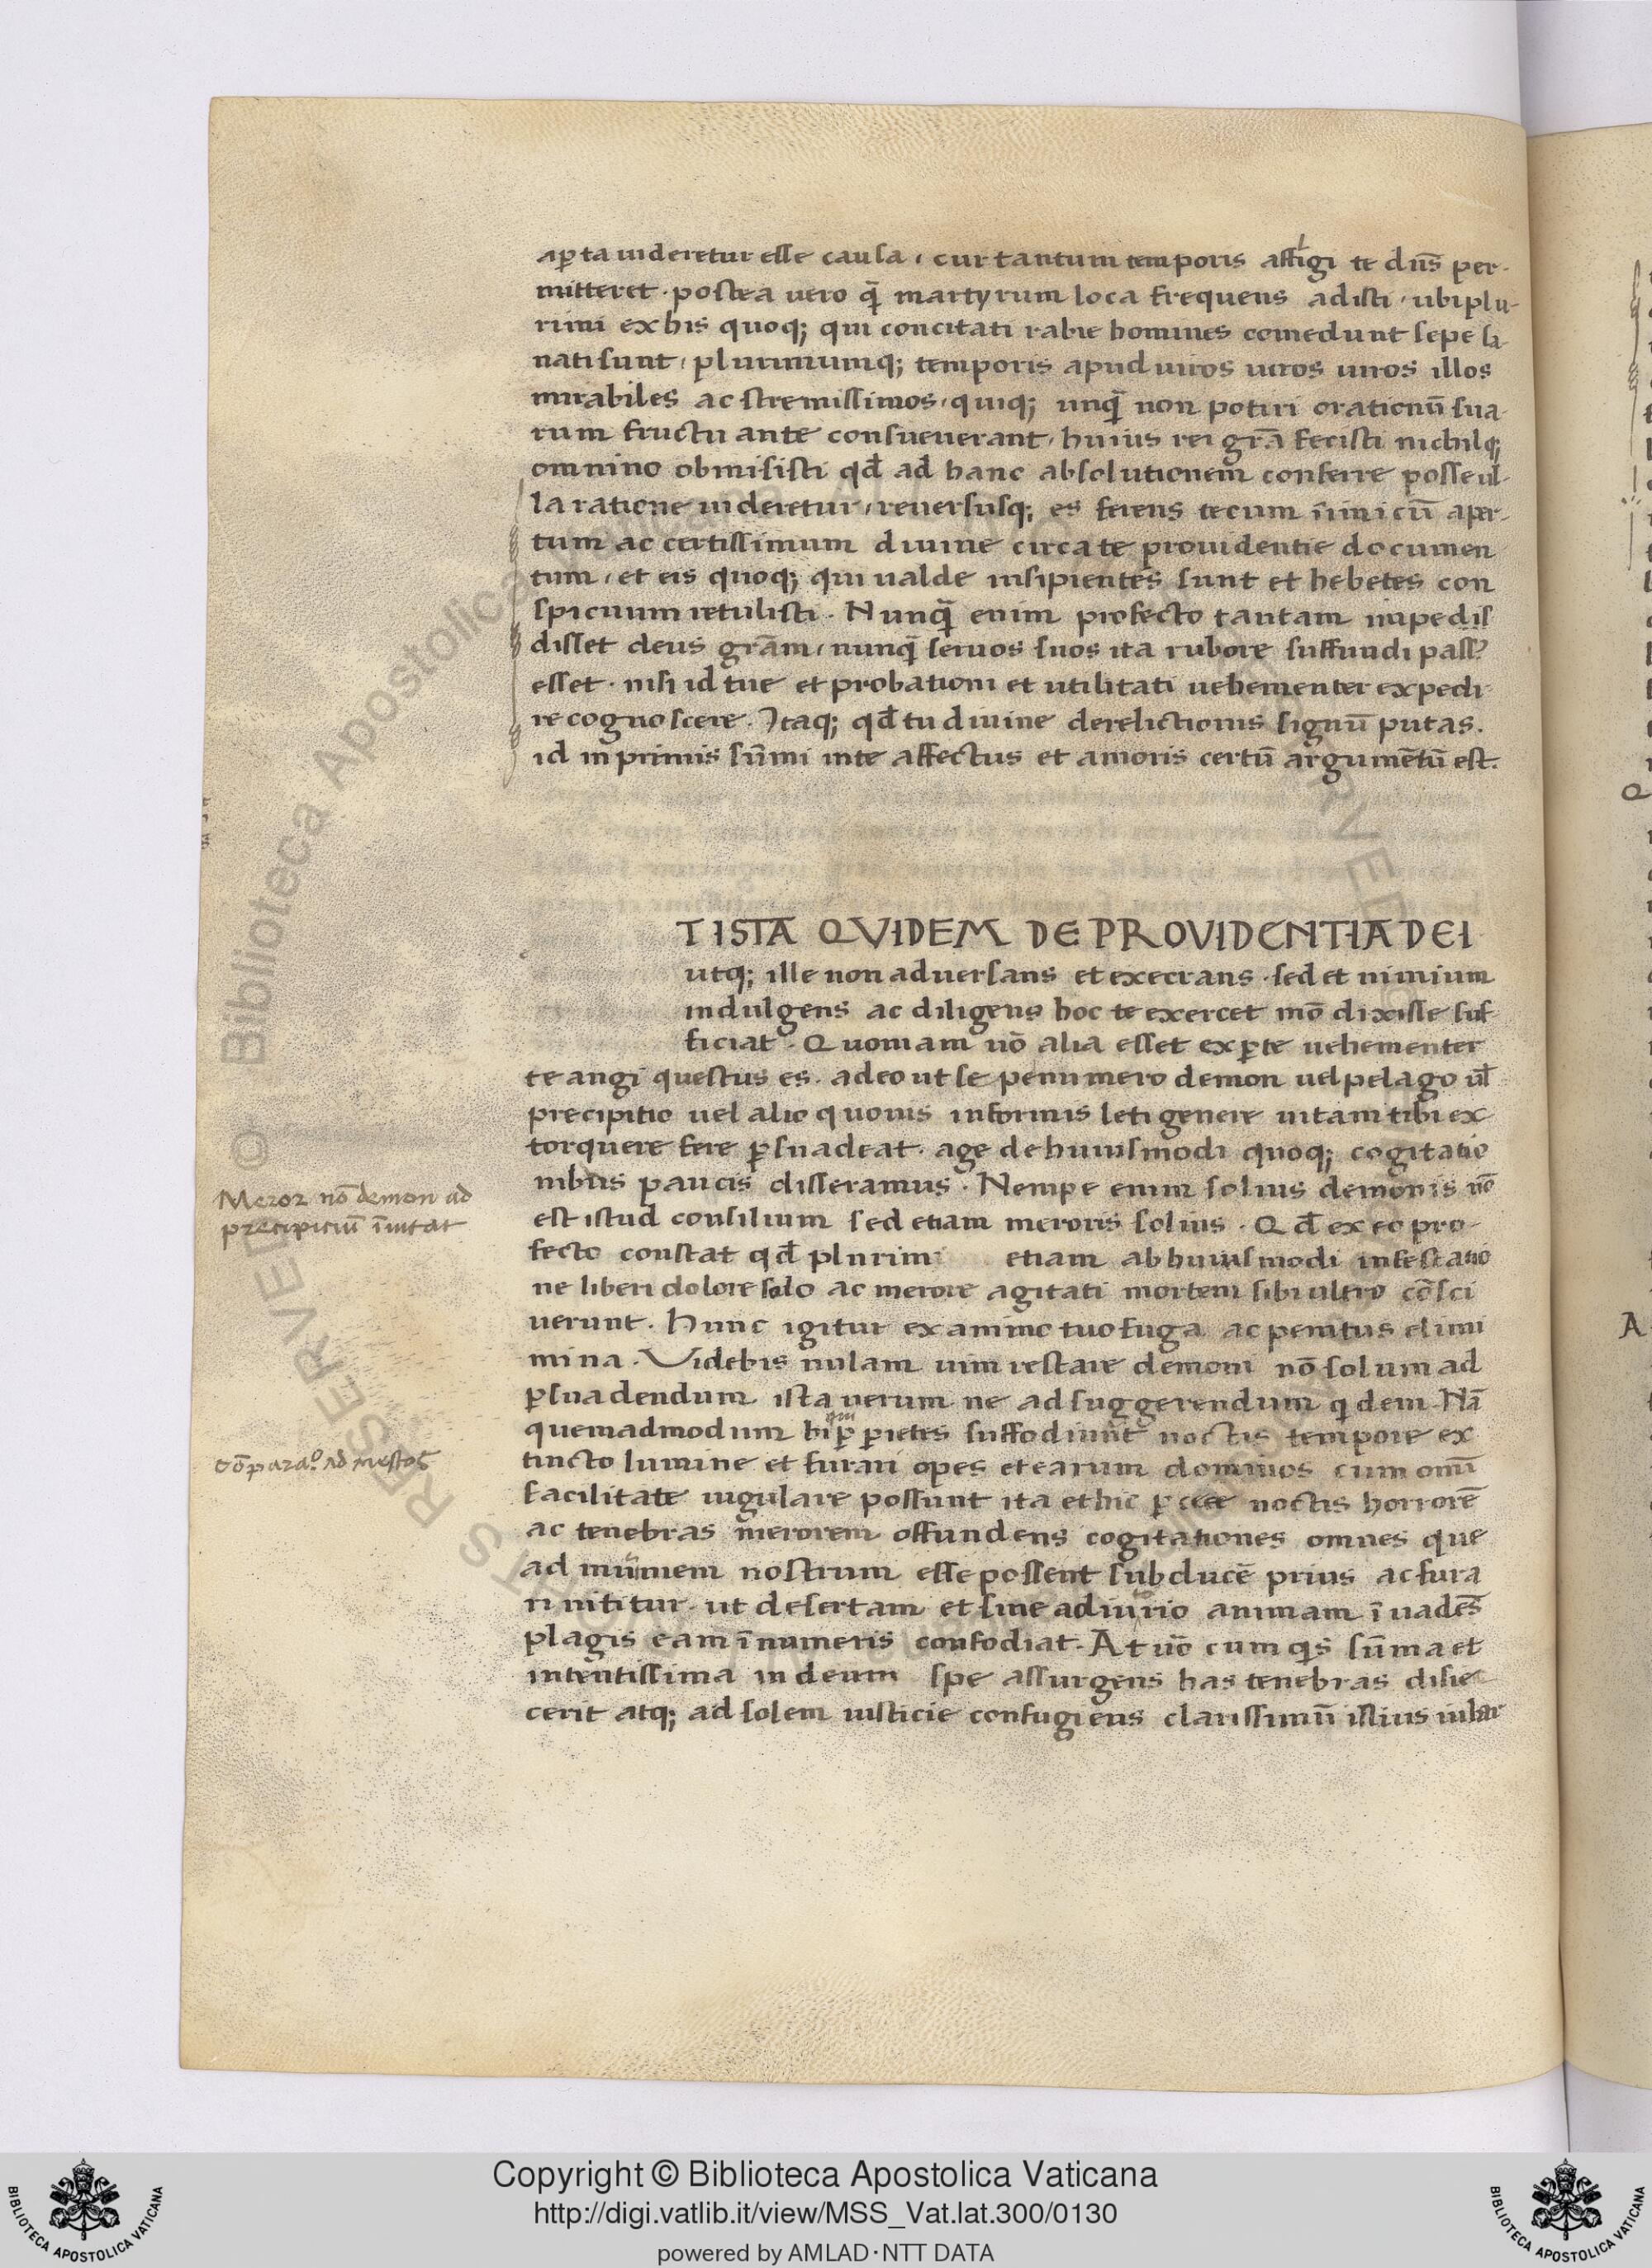 aꝑta uideretur esse causa, cur tantum temporis affligi te dns̄ per-
mitteret. postea uero q̄ martyrum loca frequens adisti, ubi plu-
rimi ex his quoq; qui concitati rabie homines comedunt sepe sa-
nati sunt, plurimumq; temporis apud uiros uiros uiros illos
mirabiles ac strenuissimos, quiq; unq̄ non potiri orationū sua-
rum fructu ante consueuerant, huius rei grā fecisti nichilq;
omnino obmisisti qd̄ ad hanc absolutionem conferre posse ul-
la ratione uideretur, reuersusq; es ferens tecum īimicū aper-
tum ac certissimum diuine circa te prouidentie documen
tum, et eis quoq; qui ualde insipientes sunt et hebetes con
spicuum retulisti. Nunq̄ enim profecto tantam impedis
disset deus grām, nunq̄ seruos suos ita rubore suffundi pass᾽
esset. nisi id tue et probationi et utilitati uehementer expedi
re cognosceret. Itaq; qd̄ tu diuine derelictionis signū putas.
id in primis sūmi in te affectus et amoris certū argumētū est.
T ISTA QVIDEM DE PROVIDENTIA DEI
utq; ille non aduersans et execrans. sed et nimium
indulgens ac diligens hoc te exercet mō dixisse suf
ficiat. Quoniam uō alia esset ex ꝑte uehementer
te angi questus es. adeo ut se penumero demon uel pelago ul̄
precipitio uel alio quouis informis leti genere uitam tibi ex
torquere fere ꝑsuadeat. age de huiusmodi quoq; cogitatio
nibus paucis disseramus. Nempe enim solius demonis nō
est istud consilium sed etiam meroris solius. Qd̄ ex eo pro-
fecto constat qd̄ plurimi etiam ab huiusmodi infestatio
ne liberi dolore solo ac merore agitati mortem sibi ultro cōsci
uerunt. Hunc igitur ex animo tuo fuga ac penitus elimi
mina. Videbis nulam uim restare demoni nō solum ad
ꝑsuadendum ista uerum ne ad suggerendum qidem. Nā
quemadmodum hi qui ꝑ ꝑietes suffodiunt noctis tempore ex
tincto lumine et furari opes et earum dominos cum omī
facilitate iugulare possunt ita et hic ꝑ cece noctis horrorē
ac tenebras merorem offundens cogitationes omnes que
ad munimem nostrum esse possent subducē prius ac fura
ri nititur. ut desertam et sine adiutorio animam īuadēs
plagis eam īnumeris confodiat. At uō cum qis sūma et
intentissima in deum spe assurgens has tenebras disie
cerit atq; ad solem iusticie confugiens clarissimū illius iubar
Meror nō demon ad
precipiciū īuitat
cōparaº. ad mestos
Copyright © Biblioteca Apostolica Vaticana
http://digi.vatlib.it/view/MSS_Vat.lat.300/0130
powered by AMLAD·NTT DATA
BIBLIOTECA APOSTOLICA VATICANA
BIBLIOTECA APOSTOLICA VATICANA